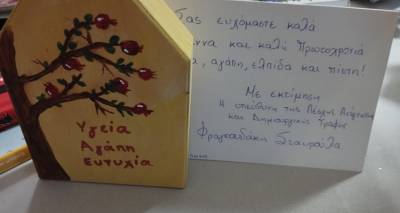 Υγεία
Αγάπη
Ευτυχία
Σας ευχόμαστε καλά
και καλή Πρωτοχρονιά
, αγάπη, ελπίδα και πίστη!
Με εκτίμηση
Η υπεύθυνη της Λέσχης Ανάγνωσης
και Δημιουργικής Γραφής
Φραγκιαδάκη Σταυρούλα